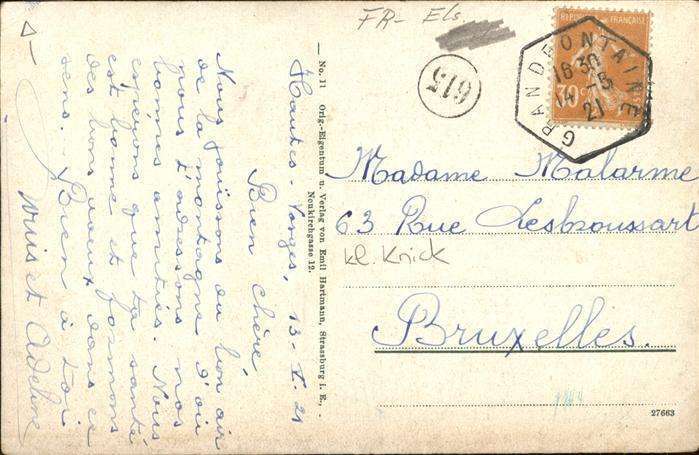 FR- Els
615
REPUBLIQUE FRANÇAISE
30
GRANDFONTAINE
16 30
14 -5
21
Madame Malarme
63 Rue Lesbroussart
kl. Knick
Bruxelles.
27663
— No. 11 Orig.-Eigentum u. Verlag von Emil Hartmann, Strassburg i. E.,
Neukirchgasse 12.
Hautes-Vosges, 13-5-21
Bien chère,
Nous jouissons du bon air
de la montagne d'où
nous t'adressons nos
bonnes amitiés. Nous
espérons que ta santé
est bonne et formons
des bons voeux dans ce
sens. Bien à toi
et Adeline